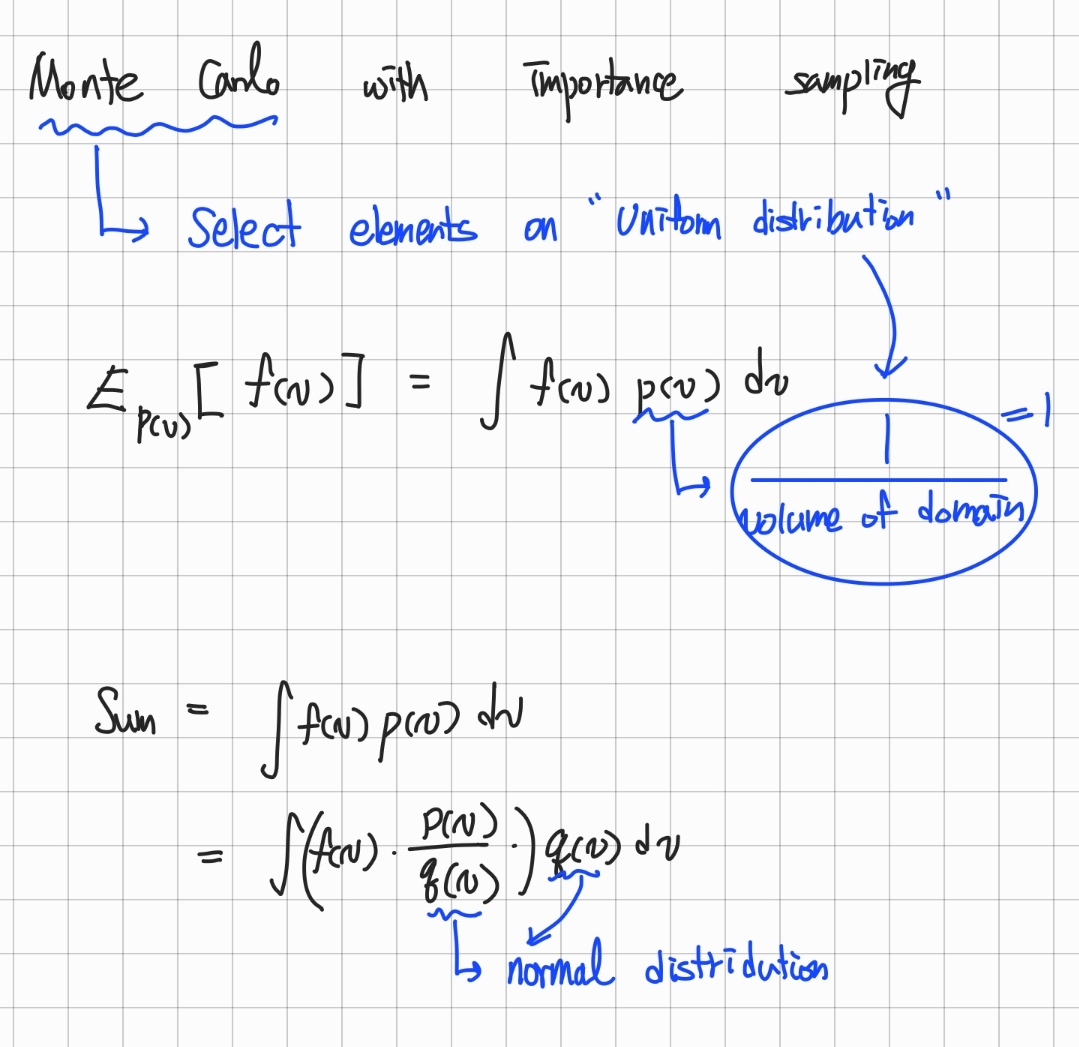 Monte Carlo with Importance sampling
Select elements on "Uniform distribution"
E_{p(v)}[f(v)] = ∫ f(v) p(v) dv
1 / volume of domain = 1
Sum = ∫ f(v) p(v) dv
= ∫ (f(v) · p(v)/q(v) ·) q(v) dv
normal distribution